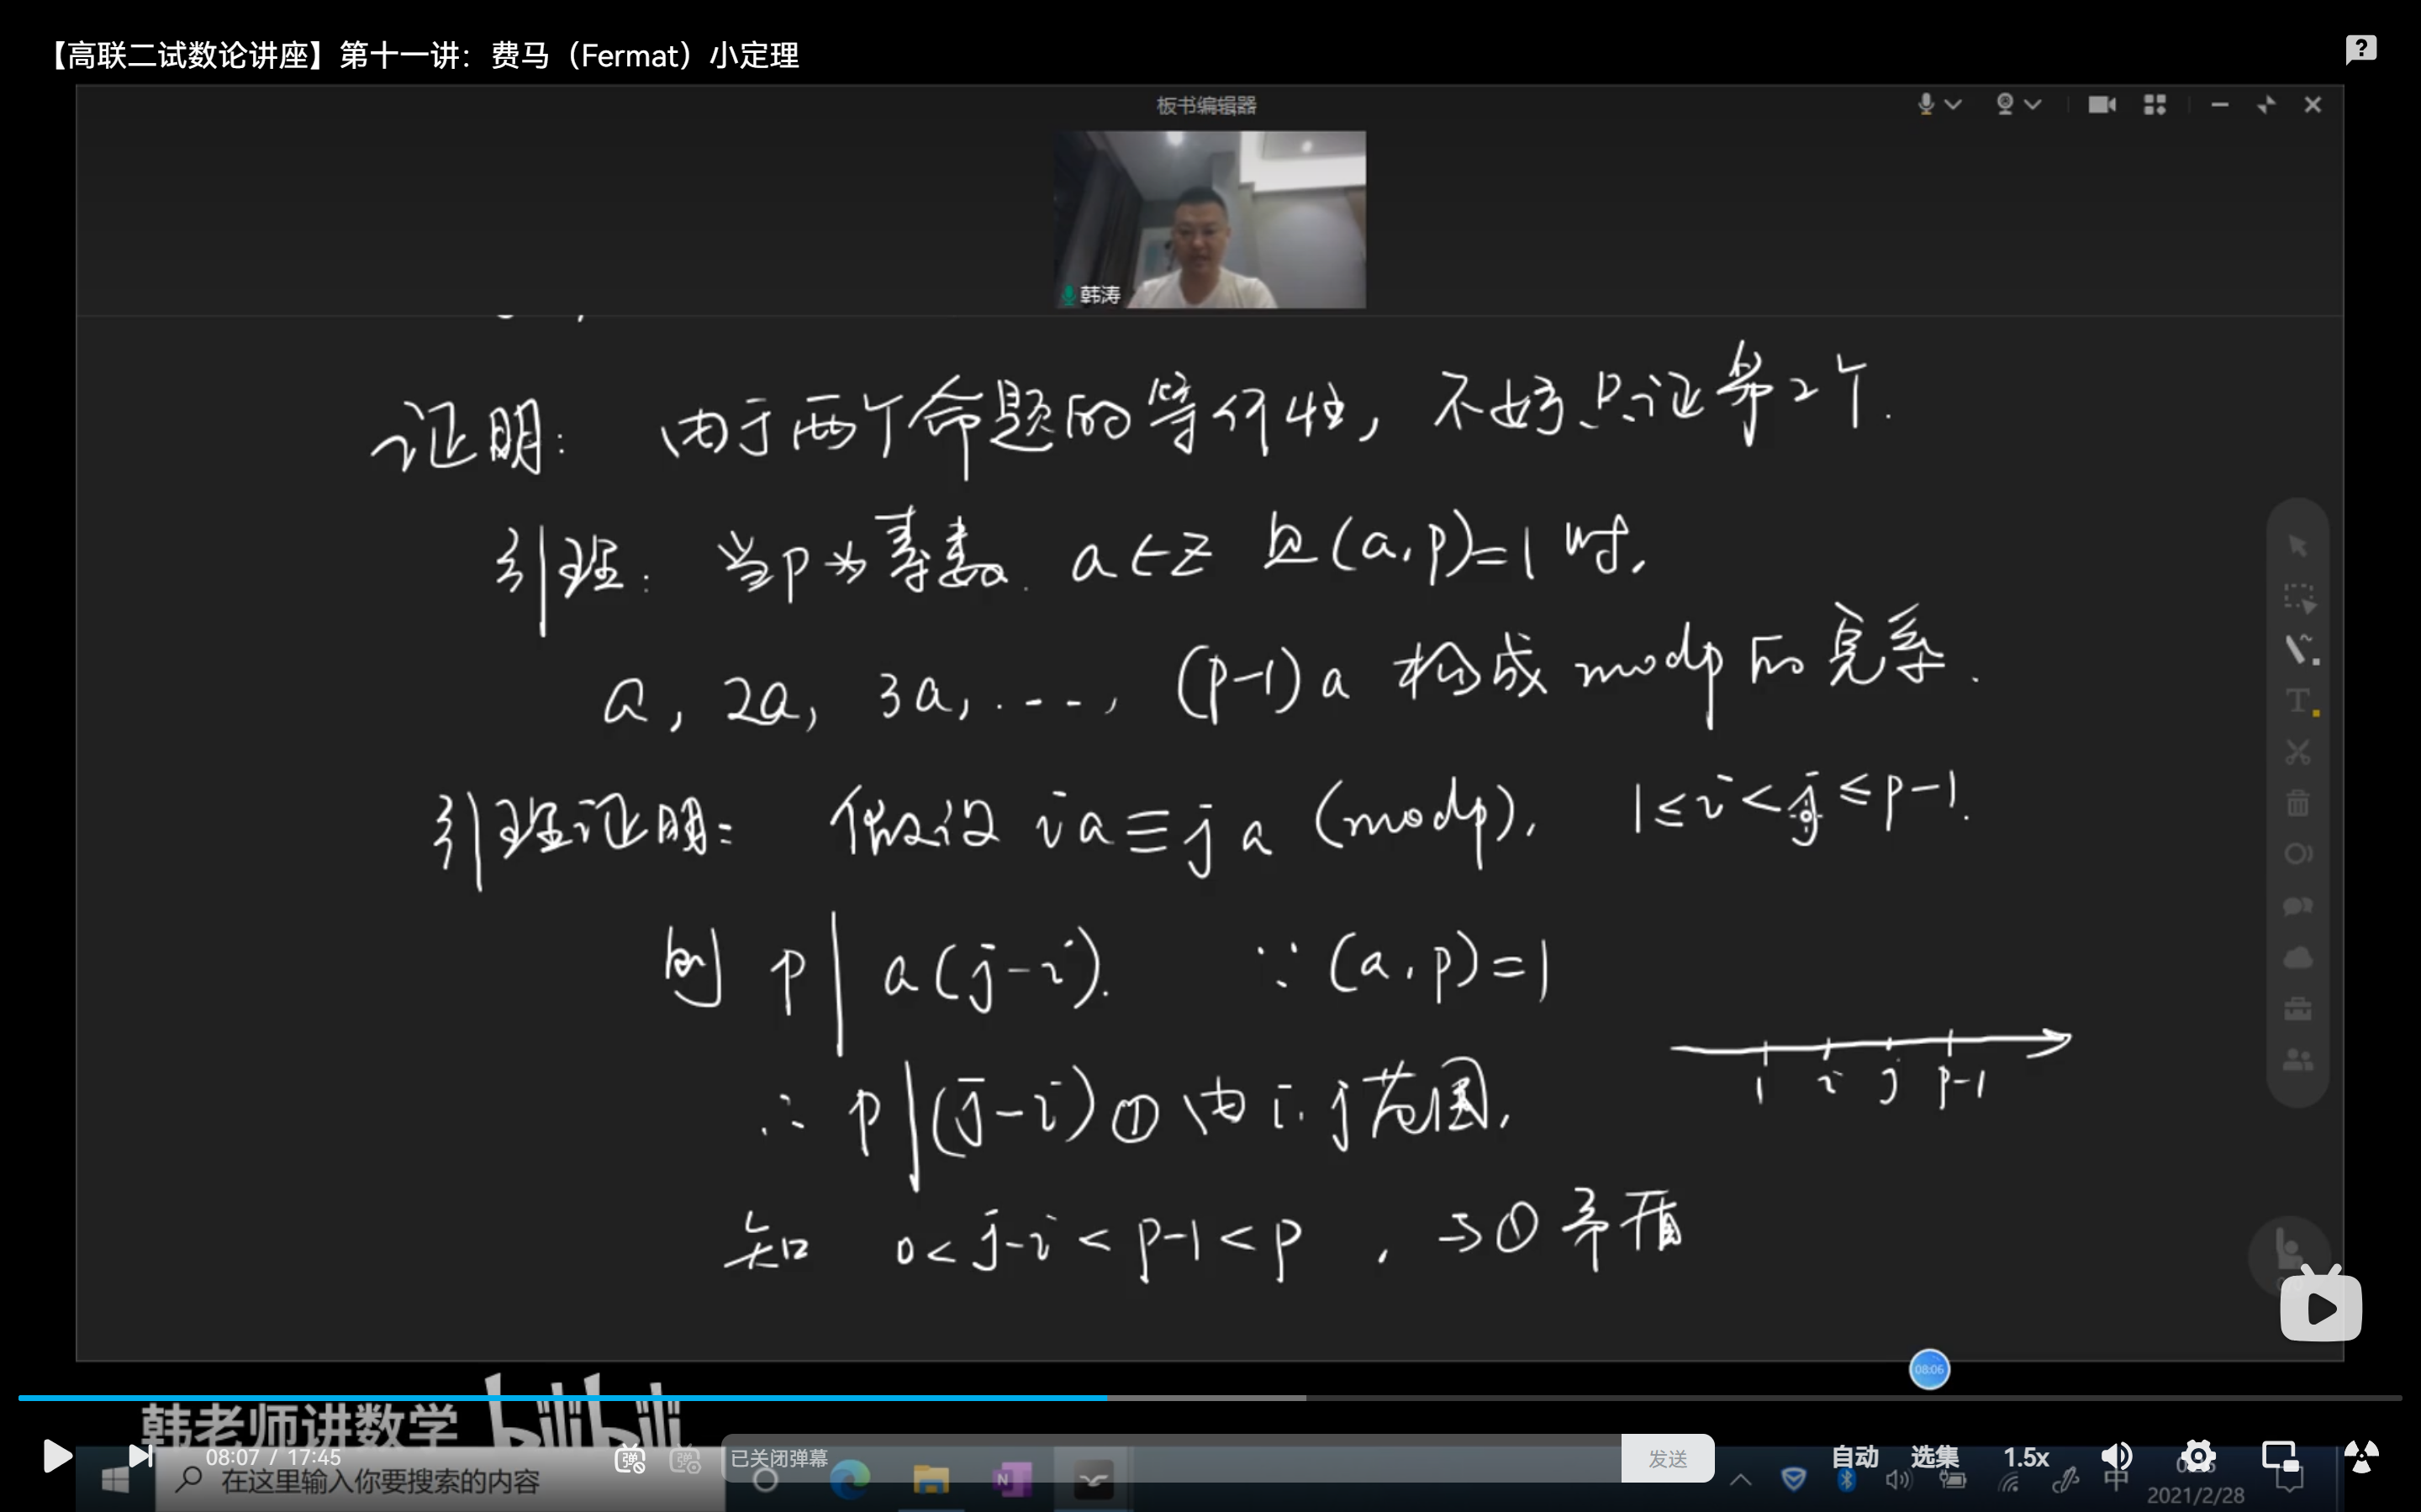 【高联二试数论讲座】第十一讲：费马（Fermat）小定理
板书编辑器
韩涛
证明： 由于两个命题的等价性，不妨只证第2个.
引理： 当p为素数. a∈Z 且(a,p)=1时,
a, 2a, 3a, ..., (p-1)a 构成 modp 的完系.
引理证明： 假设 ia≡ja (modp), 1≤i<j≤p-1.
则 p|a(j-i). ∵(a,p)=1
∴ p|(j-i)① 由i,j范围,
1 i j p-1
知 0<j-i<p-1<p , 与①矛盾
08:06
韩老师讲数学 bilibili
08:07 / 17:45
已关闭弹幕
发送
自动 选集 1.5x
在这里输入你要搜索的内容
中
2021/2/28